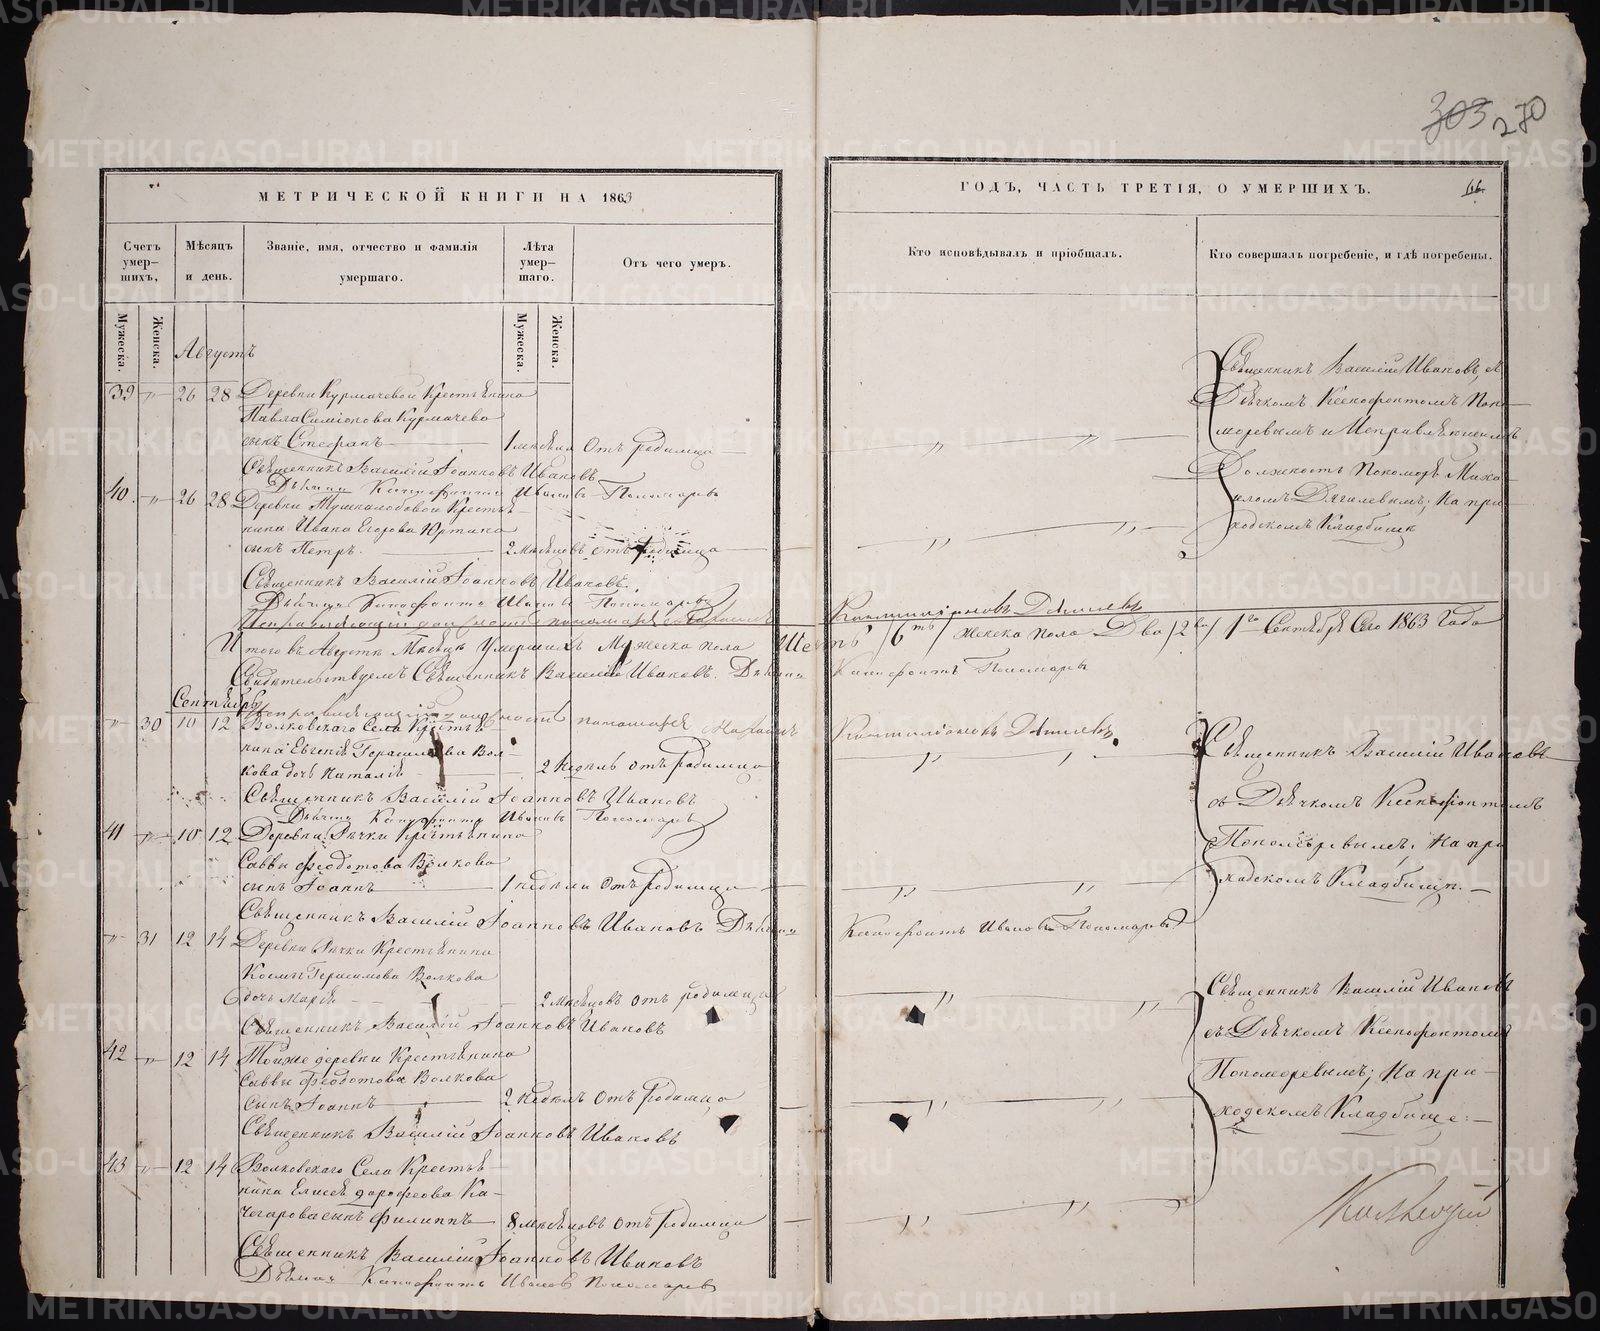 303 270
МЕТРИЧЕСКОЙ КНИГИ НА 1863
Счетъ умер-шихъ,
Мѣсяцъ и день.
Званіе, имя, отчество и фамилія умершаго.
Лѣта умер-шаго.
Отъ чего умеръ.
Мужеска.
Женска.
Мужеска.
Женска.
Августъ
39 " 26 28 Деревни Курмачевой Крестьянина
Павла Симіонова Курмачева
сынъ Стефанъ 1 мѣсяца Отъ родимца
Священникъ Василій Іоанновъ Ивановъ
Дьячекъ Ксенофонтъ Ивановъ Пономаревъ
40 " 26 28 Деревни Крестья-
нина Ивана Егорова
сынъ Петръ. 2 мѣсяцовъ отъ родимца
Священникъ Василій Іоанновъ Ивановъ.
Дьячекъ Ксенофонтъ Ивановъ Пономаревъ
Исправляющій должность пономаря
Итого въ Августѣ Мѣсяцѣ Умершихъ Мужеска пола Шесть
Свидѣтельствуемъ Священникъ Василій Ивановъ. Дьячекъ
Сентябрь
Исправляющій должность пономаря Михаилъ
" 30 10 12 Волковскаго Села Крестья-
нина Евгенія Герасимова Вол-
кова дочь Наталія 2 недѣль отъ родимца
Священникъ Василій Іоанновъ Ивановъ
Дьячекъ Ксенофонтъ Ивановъ Пономаревъ
41 " 10 12 Деревни Рѣчки Крестьянина
Саввы Феодотова Волкова
сынъ Іоаннъ 1 недѣли Отъ родимца
Священникъ Василій Іоанновъ Ивановъ Дьячекъ
" 31 12 14 Деревни Рѣчки Крестьянина
Козмы Герасимова Волкова
дочь Марія 2 мѣсяцовъ отъ родимца
Священникъ Василій Іоанновъ Ивановъ
42 " 12 14 Тойже деревни Крестьянина
Саввы Феодотова Волкова
сынъ Іоаннъ 2 недѣль Отъ Родимца
Священникъ Василій Іоанновъ Ивановъ
43 " 12 14 Волковскаго Села Крестья-
нина Елисея дорофеова Ка-
чегарова сынъ Филиппъ 8 мѣсяцовъ Отъ родимца
Священникъ Василій Іоанновъ Ивановъ
Дьячекъ Ксенофонтъ Ивановъ Пономаревъ
ГОДЪ, ЧАСТЬ ТРЕТІЯ, О УМЕРШИХЪ.
Кто исповѣдывалъ и пріобщалъ.
Кто совершалъ погребеніе, и гдѣ погребены.
Священникъ Василій Ивановъ, съ
Дьячкомъ Ксенофонтомъ Поно-
маревымъ и Исправляющимъ
Должность Пономоря Миха-
иломъ Дягилевымъ, На при-
ходскомъ Кладбище
/6ть/ женска пола Два /2ва/ 1го Сентября Сего 1863 Года
Ксенофонтъ Пономаревъ
Священникъ Василій Ивановъ
съ Дьячкомъ Ксенофонтомъ
Пономаревымъ, На при
ходскомъ Кладбищѣ.
Ксенофонтъ Ивановъ Пономаревъ
Священникъ Василій Ивановъ
съ Дьячкомъ Ксенофонтомъ
Пономаревымъ, На при-
ходскомъ Кладбище:
METRIKI.GASO-URAL.RU